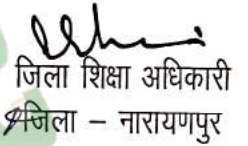 जिला शिक्षा अधिकारी
जिला – नारायणपुर